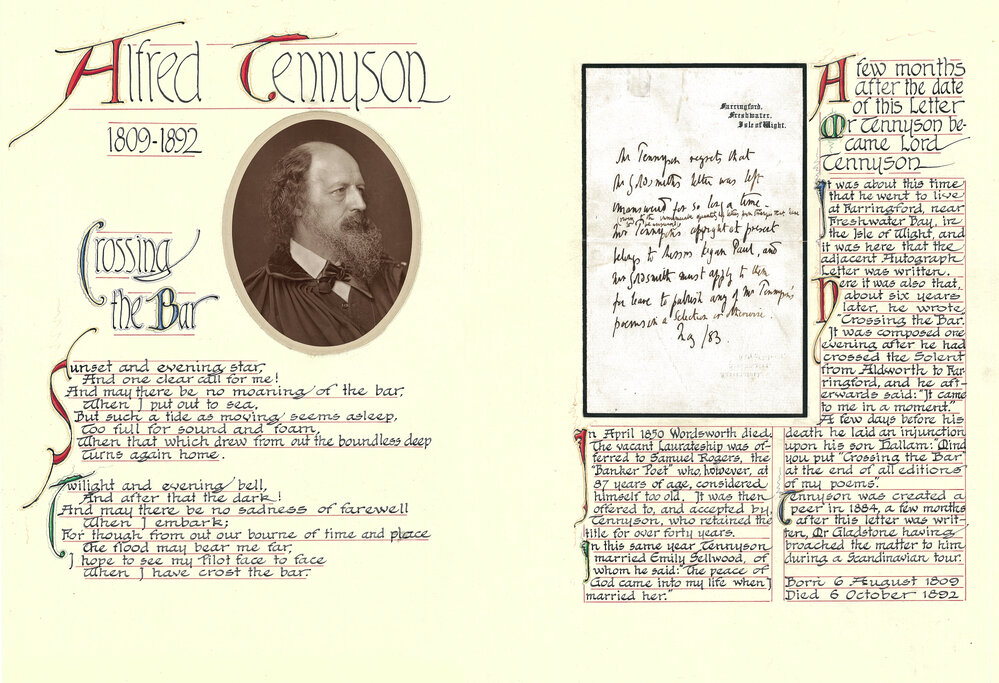 Alfred Tennyson
1809-1892
Crossing
the Bar
Sunset and evening star,
And one clear call for me!
And may there be no moaning of the bar,
When I put out to sea,
But such a tide as moving seems asleep,
Too full for sound and foam,
When that which drew from out the boundless deep
Turns again home.
Twilight and evening bell,
And after that the dark!
And may there be no sadness of farewell
When I embark;
For though from out our bourne of time and place
The flood may bear me far,
I hope to see my Pilot face to face
When I have crost the bar.
Farringford,
Freshwater,
Isle of Wight.
Mr Tennyson regrets that
Mr Goldsmith's letter was left
unanswered for so long a time.
Mr Tennyson's copyright at present
belongs to Messrs Kegan Paul, and
Mr Goldsmith must apply to them
for leave to publish any of Mr Tennyson's
poems in a Selection or otherwise.
/83.
A few months
after the date
of this Letter
Mr Tennyson be-
came Lord
Tennyson
It was about this time
that he went to live
at Farringford, near
Freshwater Bay, in
the Isle of Wight, and
it was here that the
adjacent Autograph
Letter was written.
Here it was also that,
about six years
later, he wrote
"Crossing the Bar."
It was composed one
evening after he had
crossed the Solent
from Aldworth to Far-
ringford, and he aft-
erwards said: "It came
to me in a moment."
A few days before his
death he laid an injunction
upon his son Hallam: "Mind
you put "Crossing the Bar"
at the end of all editions
of my poems."
Tennyson was created a
peer in 1884, a few months
after this letter was writ-
ten, Mr Gladstone having
broached the matter to him
during a Scandinavian tour.
Born 6 August 1809
Died 6 October 1892
In April 1850 Wordsworth died.
The vacant Laurateship was of-
ferred to Samuel Rogers, the
"Banker Poet" who, however, at
87 years of age, considered
himself too old. It was then
offered to, and accepted by,
Tennyson, who retained the
title for over forty years.
In this same year Tennyson
married Emily Sellwood, of
whom he said: "The peace of
God came into my life when I
married her."